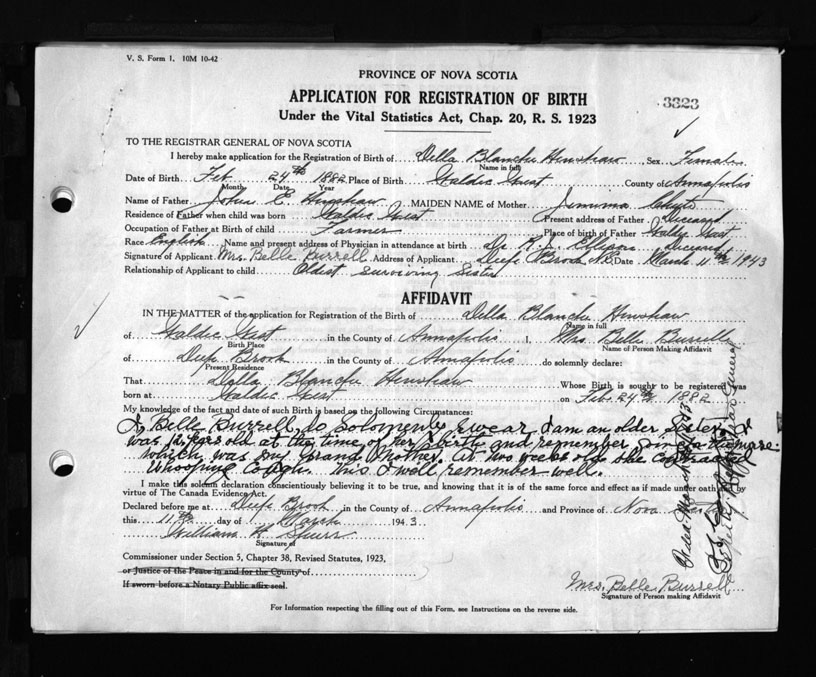 V. S. Form 1. 10M 10-42
PROVINCE OF NOVA SCOTIA
APPLICATION FOR REGISTRATION OF BIRTH
3323
Under the Vital Statistics Act, Chap. 20, R. S. 1923
TO THE REGISTRAR GENERAL OF NOVA SCOTIA
I hereby make application for the Registration of Birth of Della Blanche Henshaw Sex Female
Name in full
Date of Birth Feb 24th 1882 Place of Birth Waldec West County of Annapolis
Month Date Year
Name of Father John E. Henshaw MAIDEN NAME of Mother Jemima Chute
Residence of Father when child was born Waldec West Present address of Father Deceased
Occupation of Father at Birth of child Farmer Place of Birth of Father Waldec West
Race English Name and present address of Physician in attendance at birth Dr. Deceased
Signature of Applicant Mrs. Belle Burrell Address of Applicant Deep Brook N.S. Date March 11th 1943
Relationship of Applicant to child Oldest surviving sister
AFFIDAVIT
IN THE MATTER of the application for Registration of the Birth of Della Blanche Henshaw
Name in full
of Waldec West in the County of Annapolis I, Mrs. Belle Burrell
Birth Place Name of Person Making Affidavit
of Deep Brook in the County of Annapolis do solemnly declare:
Present Residence
That Della Blanche Henshaw Whose Birth is sought to be registered was
born at Waldec West on Feb. 24th 1882
My knowledge of the fact and date of such Birth is based on the following Circumstances:
I Belle Burrell do Solomenly swear I am an older sister, I
was 12 years old at the time of her birth and remember
which was my Grand Mother. At two weeks old she contracted
Whooping Cough. This I well remember well.
I make this solemn declaration conscientiously believing it to be true, and knowing that it is of the same force and effect as if made under oath by
virtue of The Canada Evidence Act.
Declared before me at Deep Brook in the County of Annapolis and Province of Nova Scotia
this 11th day of March 1943
William H. Spurr
Signature of
Commissioner under Section 5, Chapter 38, Revised Statutes, 1923,
or Justice of the Peace in and for the County of
If sworn before a Notary Public affix seal.
Mrs. Belle Burrell
Signature of Person making Affidavit
For Information respecting the filling out of this Form, see Instructions on the reverse side.
Deputy Registrar General